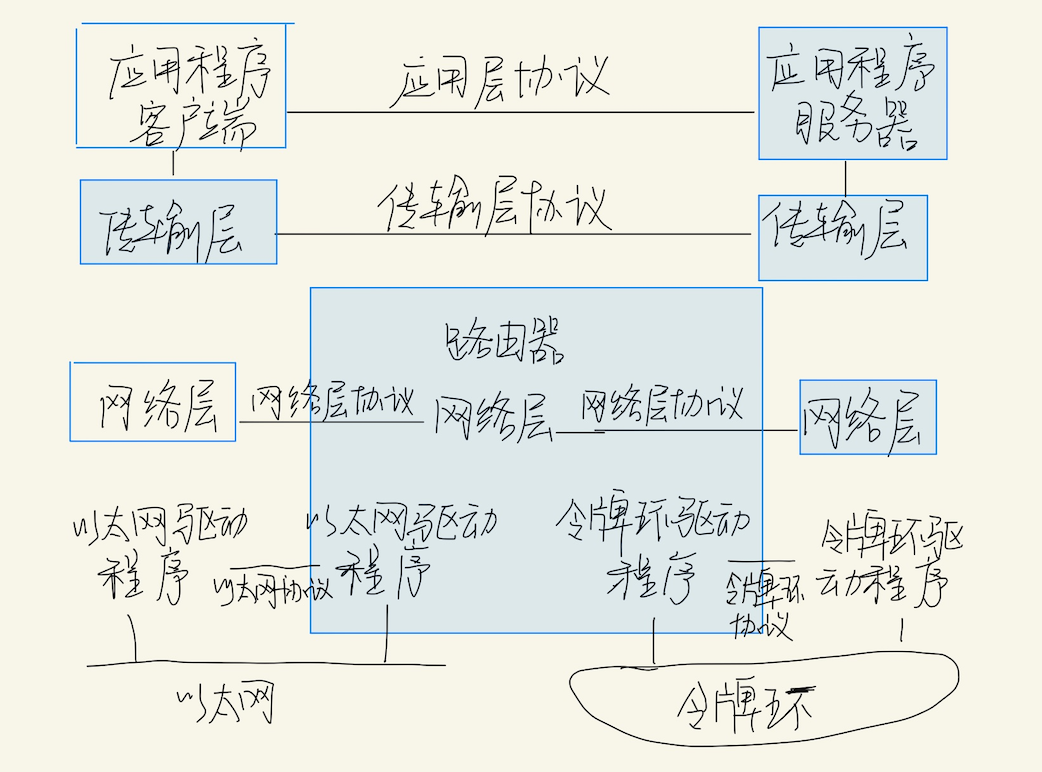 应用程序
客户端
应用层协议
应用程序
服务器
传输层
传输层协议
传输层
路由器
网络层
网络层协议
网络层
网络层协议
网络层
以太网驱动
程序
以太网协议
以太网驱动
程序
令牌环驱动
程序
令牌环
协议
令牌环驱
动程序
以太网
令牌环